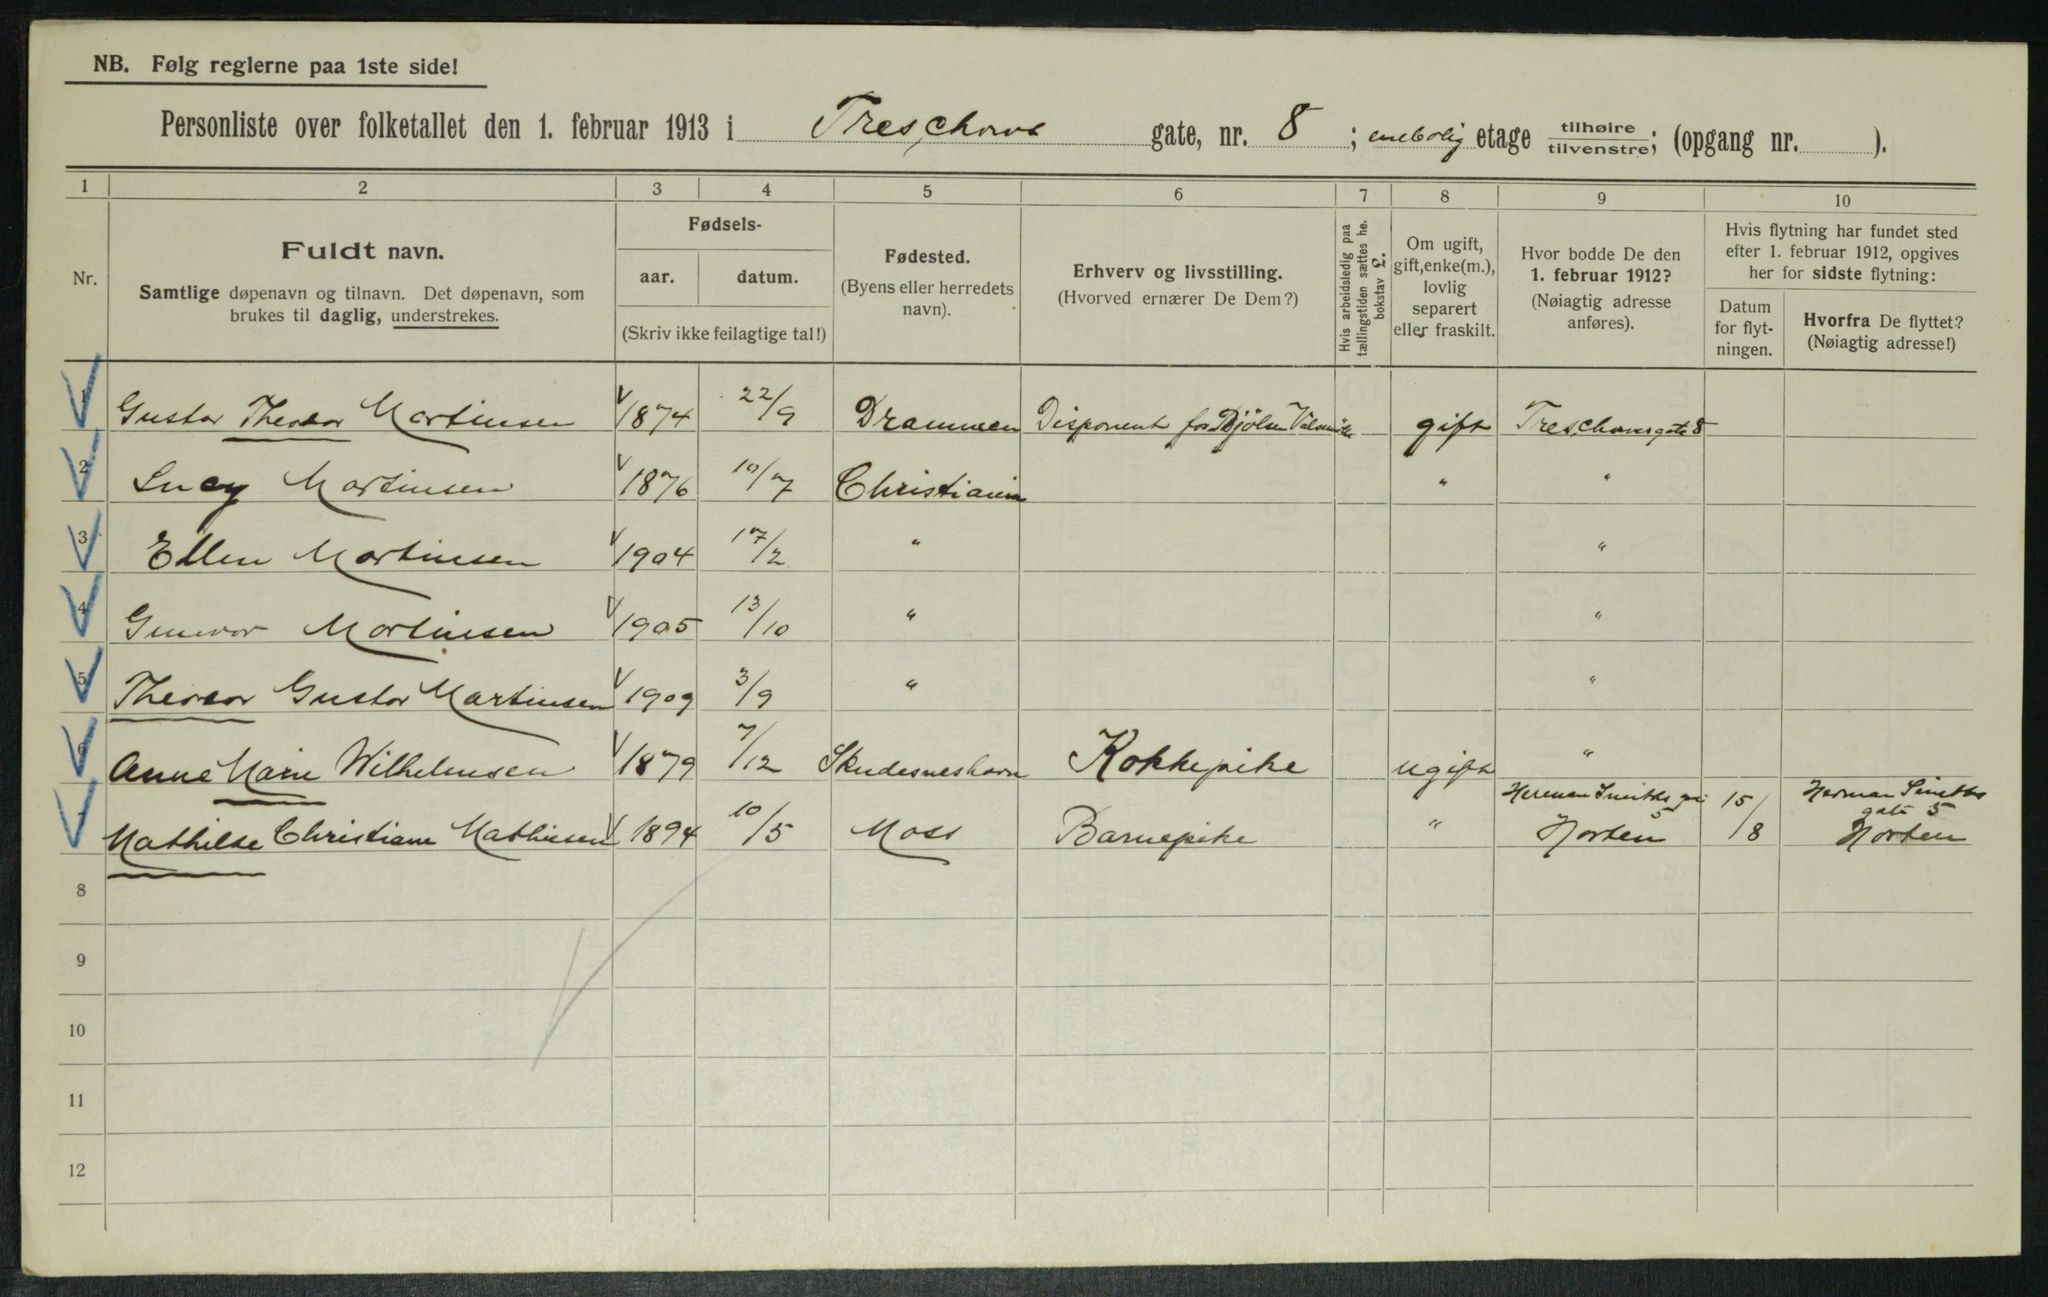 NB. Følg reglerne paa 1ste side!
Personliste over folketallet den 1. februar 1913 i Treschows gate, nr. 8 ; enebolig etage tilhøire tilvenstre; (opgang nr. ).
1 2 3 4 5 6 7 8 9 10
Nr.
Fuldt navn.
Samtlige døpenavn og tilnavn. Det døpenavn, som
brukes til daglig, understrekes.
Fødsels-
aar. datum.
(Skriv ikke feilagtige tal!)
Fødested.
(Byens eller herredets
navn).
Erhverv og livsstilling.
(Hvorved ernærer De Dem?)
Hvis arbeidsledig paa
tællingstiden sættes he.
bokstav L.
Om ugift,
gift, enke(m.),
lovlig
separert
eller fraskilt.
Hvor bodde De den
1. februar 1912?
(Nøiagtig adresse
anføres).
Hvis flytning har fundet sted
efter 1. februar 1912, opgives
her for sidste flytning:
Datum
for flyt-
ningen.
Hvorfra De flyttet?
(Nøiagtig adresse!)
1 Gustav Theodor Martinsen 1874 22/9 Drammen Disponent for Bjølsen Valsemølle gift Treschowsgate 8
2 Lucy Martinsen 1876 10/7 Christiania " "
3 Ellen Martinsen 1904 17/2 " "
4 Gunvor Martinsen 1905 13/10 " "
5 Theodor Gustav Martinsen 1909 3/9 " "
6 Anne Marie Wilhelmsen 1879 7/12 Skudesneshavn Kokkepike ugift "
7 Mathilde Christiane Mathiesen 1894 10/5 Moss Barnepike " Herman Smiths 5 Horten 15/8 Herman Smiths gate 5 Horten
8
9
10
11
12